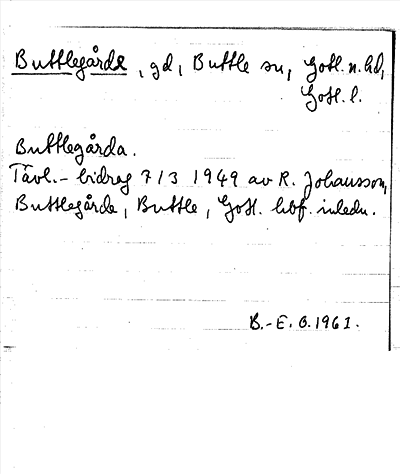 Buttlegårde, gd, Buttle sn, Gotl. n. hd,
Gotl. l.
Buttlegårda.
Tävl.-bidrag 7/3 1949 av R. Johansson,
Buttlegårde, Buttle, Gotl. hbf. inledn.
B.-E. O. 1961.